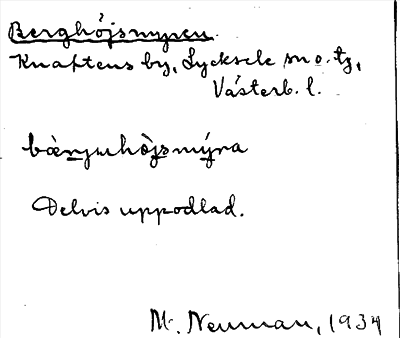 Berghöjsmyren
Knaftens by, Lycksele sn o. tg,
Västerb. l.
bàrjuhöjsmýra
Delvis uppodlad.
M. Neuman, 1934